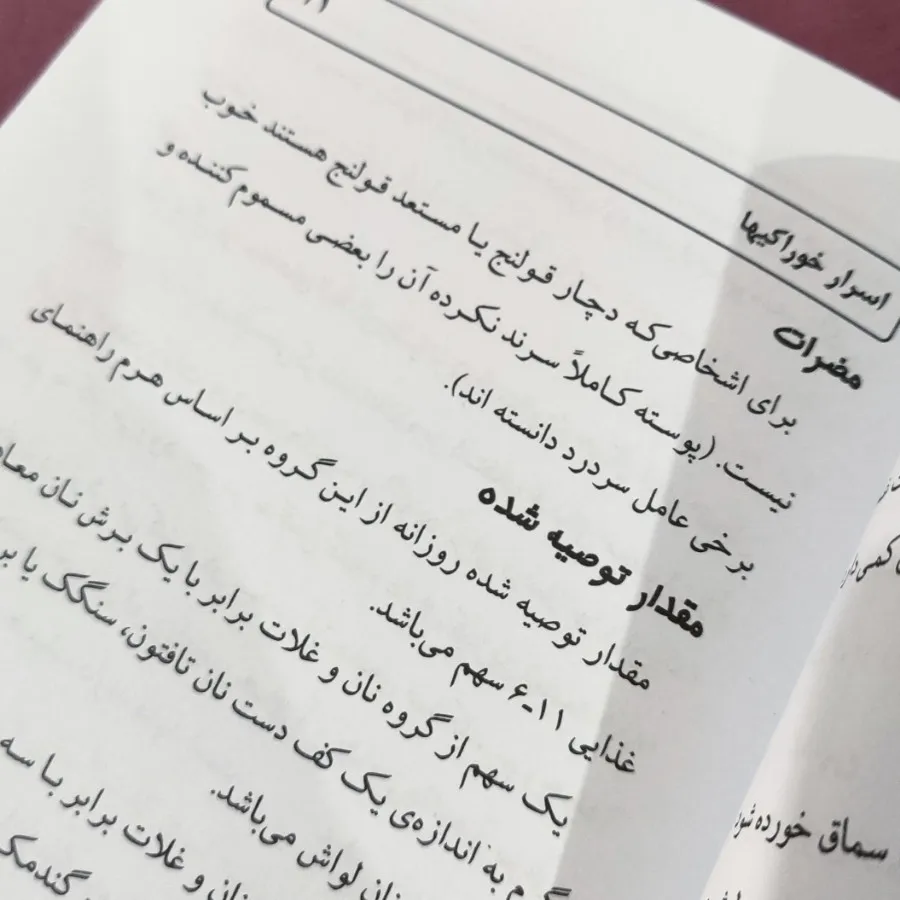 اسرار خوراکیها
مضرات
برای اشخاصی که دچار قولنج یا مستعد قولنج هستند خوب
نیست. (پوسته کاملاً سرند نکرده آن را بعضی مسموم کننده و
برخی عامل سردرد دانسته اند).
مقدار توصیه شده
مقدار توصیه شده روزانه از این گروه بر اساس هرم راهنمای
غذایی ۱۱-۶ سهم می‌باشد.
یک سهم از گروه نان و غلات برابر با یک برش نان
گرم به اندازه‌ی یک کف دست نان تافتون، سنگک یا
نان لواش می‌باشد.
نان و غلات برابر با سه
سماق خورده